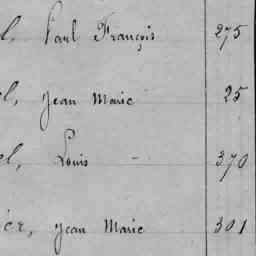 l, Paul François 275
el, Jean Marie 25
el, Louis - 370
ier, Jean Marie 301